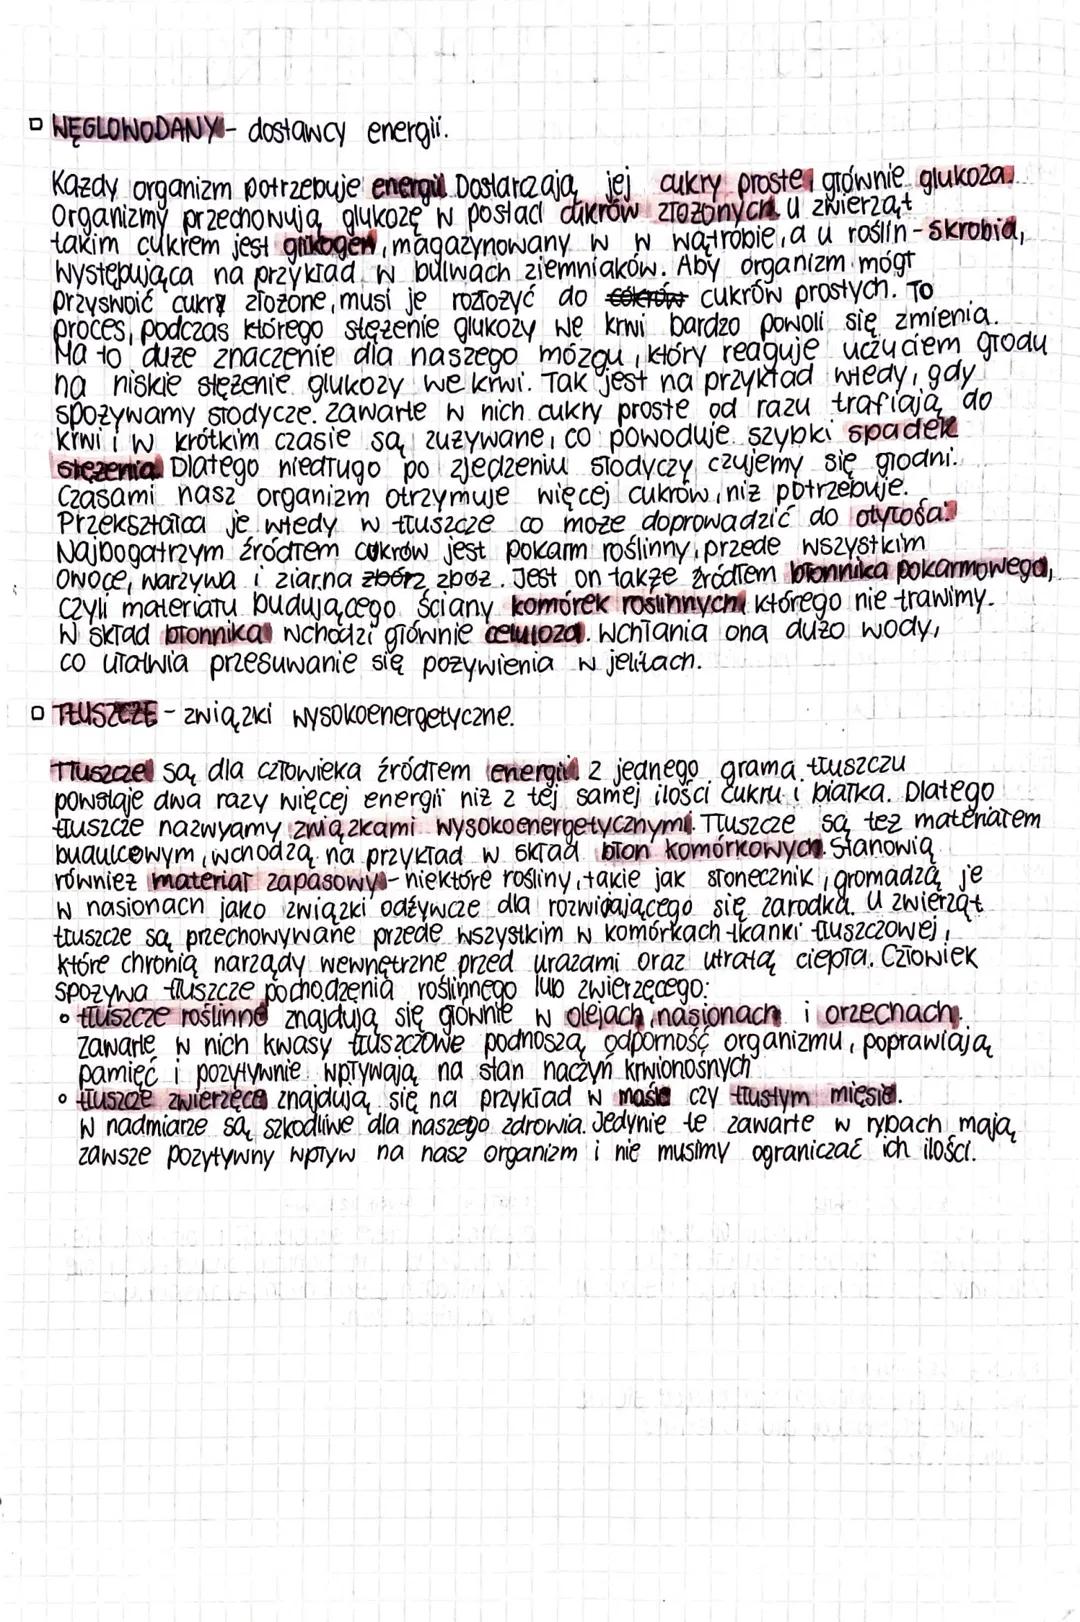 WĘGLOWODANY - dostawcy energii.
Każdy organizm potrzebuje energii. Dostarczają jej cukry proste, głównie glukoza.
Organizmy przechowują glukozę w postaci cukrów złożonych. U zwierząt
takim cukrem jest glikogen, magazynowany w w wątrobie, a u roślin - skrobia,
występująca na przykład w bulwach ziemniaków. Aby organizm mógł
przyswoić cukry złożone, musi je rozłożyć do cukrów prostych. To
proces, podczas którego stężenie glukozy we krwi bardzo powoli się zmienia.
Ma to duże znaczenie dla naszego mózgu, który reaguje uczuciem głodu
na niskie stężenie glukozy we krwi. Tak jest na przykład wtedy, gdy
spożywamy słodycze. Zawarte w nich cukry proste od razu trafiają do
krwi i w krótkim czasie są zużywane, co powoduje szybki spadek
stężenia. Dlatego niedługo po zjedzeniu słodyczy czujemy się głodni.
Czasami nasz organizm otrzymuje więcej cukrów, niż potrzebuje.
Przekształca je wtedy w tłuszcze co może doprowadzić do otyłości.
Najbogatrzym źródłem cukrów jest pokarm roślinny, przede wszystkim
owoce, warzywa i ziarna zbórz zbóż. Jest on także źródłem błonnika pokarmowego,
czyli materiału budującego ściany komórek roślinnych, którego nie trawimy.
W skład błonnika wchodzi głównie celuloza. Wchłania ona dużo wody,
co ułatwia przesuwanie się pożywienia w jelitach.
TŁUSZCZE - związki wysokoenergetyczne.
Tłuszcze są dla człowieka źródłem energii. Z jednego grama tłuszczu
powstaje dwa razy więcej energii niż z tej samej ilości cukru i białka. Dlatego
tłuszcze nazwyamy związkami wysokoenergetycznymi. Tłuszcze są też materiałem
budulcowym, wchodzą na przykład w skład błon komórkowych. Stanowią
również materiał zapasowy - niektóre rośliny, takie jak słonecznik, gromadzą je
w nasionach jako związki odżywcze dla rozwijającego się zarodka. U zwierząt
tłuszcze są przechowywane przede wszystkim w komórkach tkanki tłuszczowej,
które chronią narządy wewnętrzne przed urazami oraz utratą ciepła. Człowiek
spożywa tłuszcze pochodzenia roślinnego lub zwierzęcego:
tłuszcze roślinne znajdują się głównie w olejach, nasionach i orzechach.
Zawarte w nich kwasy tłuszczowe podnoszą odporność organizmu, poprawiają
pamięć i pozytywnie wpływają na stan naczyń krwionośnych
tłuszcze zwierzęce znajdują się na przykład w maśle czy tłustym mięsie.
W nadmiarze są szkodliwe dla naszego zdrowia. Jedynie te zawarte w rybach mają
zawsze pozytywny wpływ na nasz organizm i nie musimy ograniczać ich ilości.